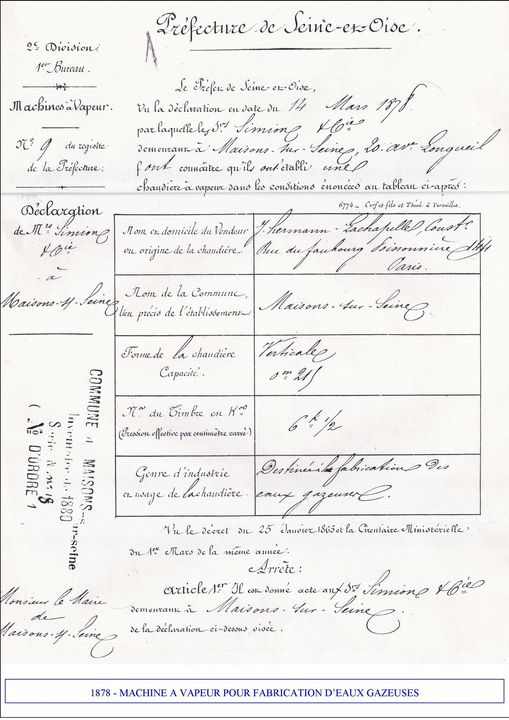 Préfecture de Seine-et-Oise.
2e Division
1er Bureau.
Machines à Vapeur.
No 9 du registre
de la Préfecture:
Le Préfet de Seine-et-Oise,
Vu la déclaration en date du 14 Mars 1878
par laquelle les Srs Simion & Cie
demeurant à Maisons-sur-Seine, 20. ave Longueil
font connaître qu'ils ont établi une
chaudière à vapeur dans les conditions énoncées au tableau ci-après:
6774 - Cerf et fils et Thiré à Versailles.
Déclaration
de Mrs Simion
& Cie
à
Maisons-s/-Seine
Nom et domicile du Vendeur
ou origine de la chaudière.
J. Hermann-Lachapelle, Constr
Rue du faubourg Poissonnière 144
Paris.
Nom de la Commune,
lieu précis de l'établissement.
Maisons-sur-Seine
Forme de la chaudière
Capacité.
Verticale
0m 215
No du Timbre en Kros
(Pression effective par centimètre carré)
6k 1/2
Genre d'industrie
et usage de la chaudière.
Destinée à la fabrication des
eaux gazeuses.
COMMUNE de MAISONS-sur-seine
Inventaire de 1880
Série No 18
(No D'ORDRE 1
Vu le décret du 25 Janvier 1865 et la Circulaire Ministérielle
du 1er Mars de la même année.
Arrête:
Article 1er Il est donné acte aux Srs Simion & Cie
demeurant à Maisons-sur-Seine
de la déclaration ci-dessus visée.
Monsieur le Maire
de
Maisons-s/-Seine
1878 - MACHINE A VAPEUR POUR FABRICATION D'EAUX GAZEUSES